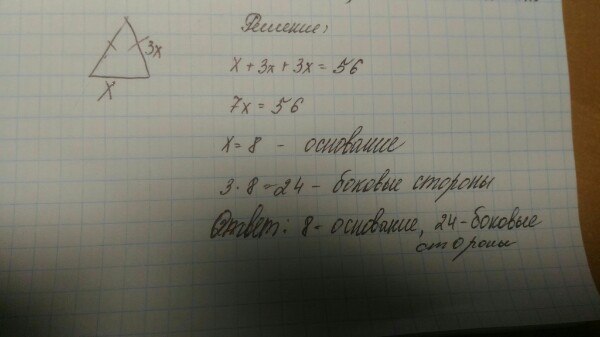 Решение:
3x
x
x + 3x + 3x = 56
7x = 56
x = 8 - основание
3 · 8 = 24 - боковые стороны
Ответ: 8 - основание, 24 - боковые
стороны